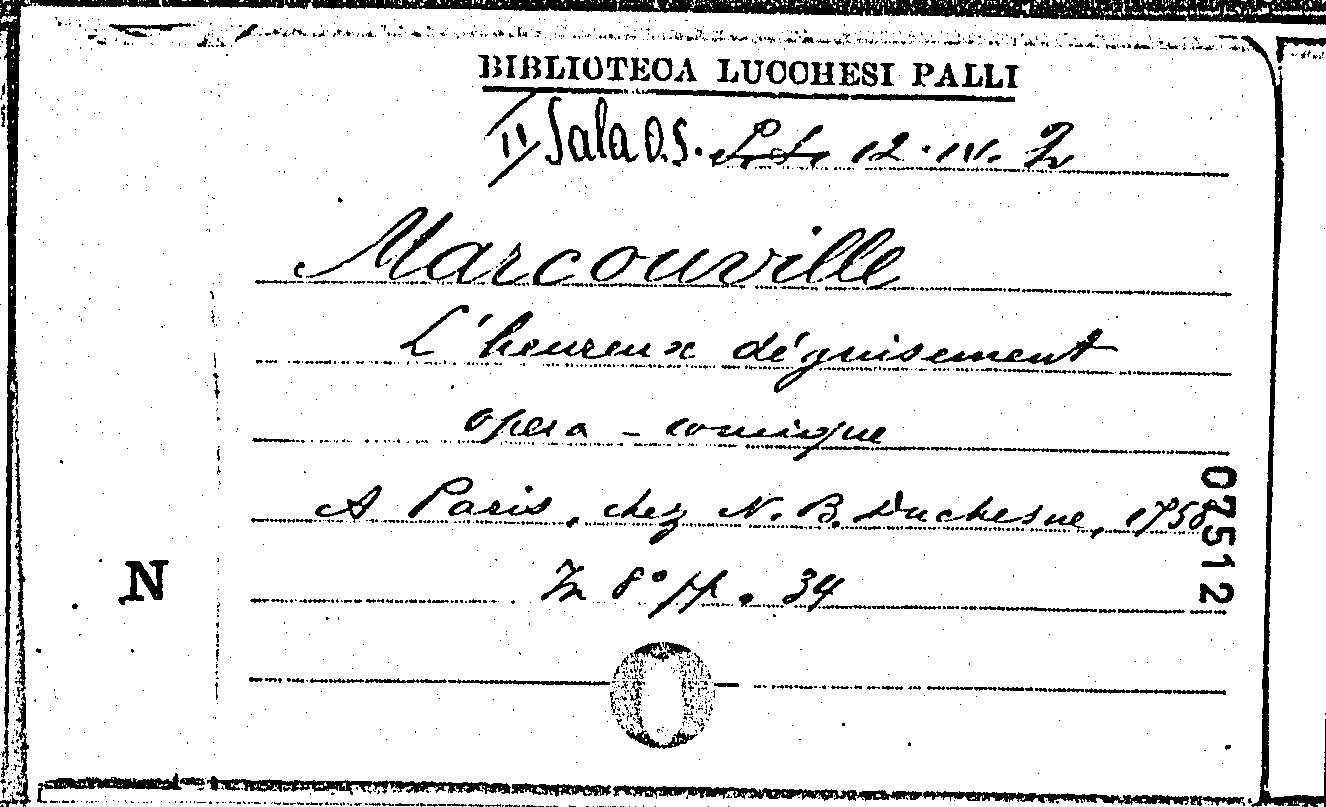 BIBLIOTECA LUCCHESI PALLI
II Sala O.S. 12. IV. 2
Marcouville
L'heureux déguisement
opera - comique
A Paris, chez N. B. Duchesne, 1758
07512
N
In 8° pp. 34